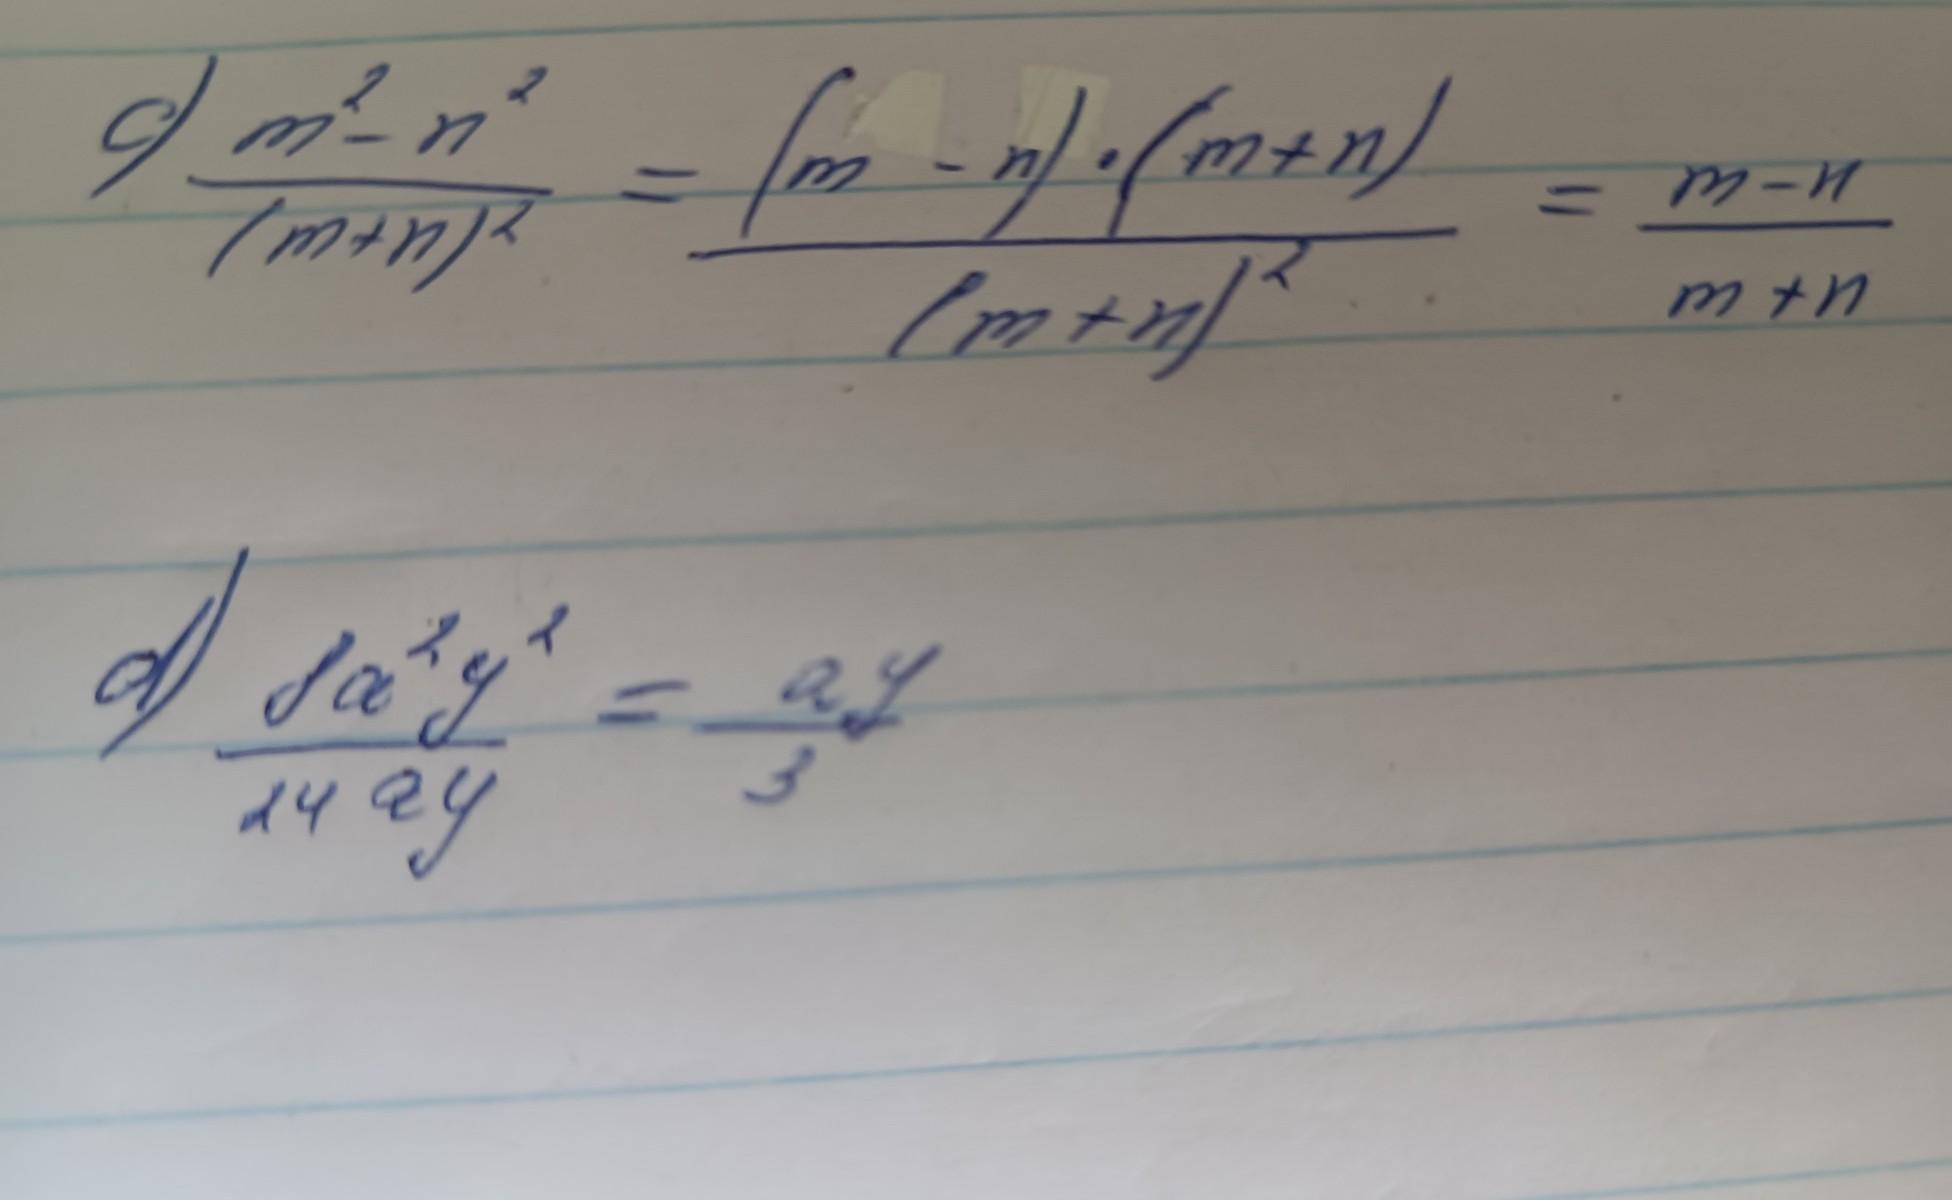 c) (m² - n²)/(m+n)² = ((m - n)·(m+n))/(m+n)² = (m-n)/(m+n)
d) 8a²y²/24ay = ay/3